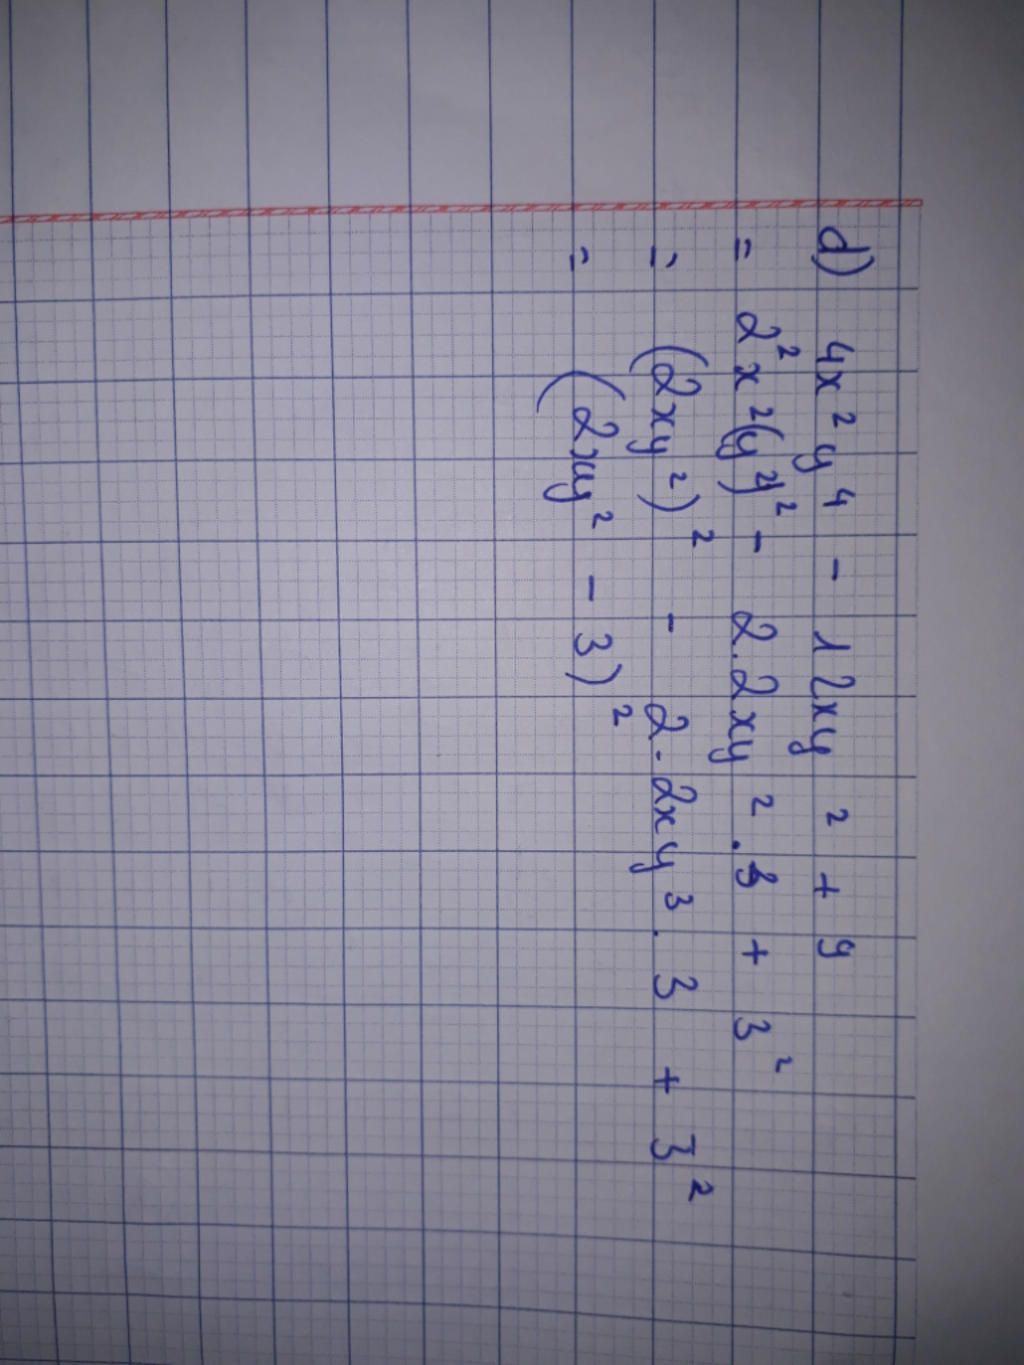 d) 4x² y⁴ - 12xy² + 9
= 2² x² (y²)² - 2.2xy² . 3 + 3²
= (2xy²)² - 2.2xy³ . 3 + 3²
= (2xy² - 3)²